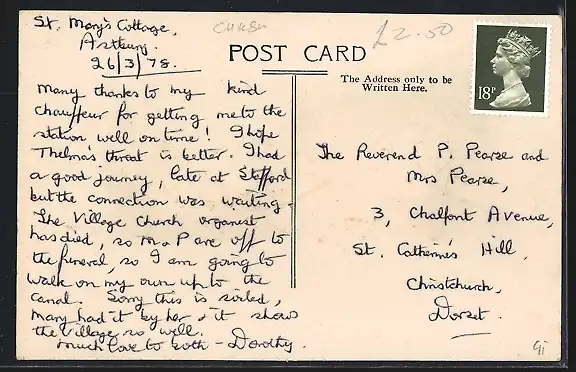 St. Mary's Cottage,
Astbury.
26/3/78.
Many thanks to my kind
chauffeur for getting me to the
station well on time! I hope
Thelma's throat is better. I had
a good journey, late at Stafford
but the connection was waiting.
The Village Church organest
has died, so M & P are off to
the funeral, so I am going to
walk on my own up to the
canal. Sorry this is soiled,
Mary had it by her & it shows
the village so well.
Much love to both - Dorothy.
£2.50
POST CARD
The Address only to be
Written Here.
18P
The Reverend P. Pearse and
Mrs Pearse,
3, Chalfont Avenue,
St. Catherine's Hill,
Christchurch,
Dorset.